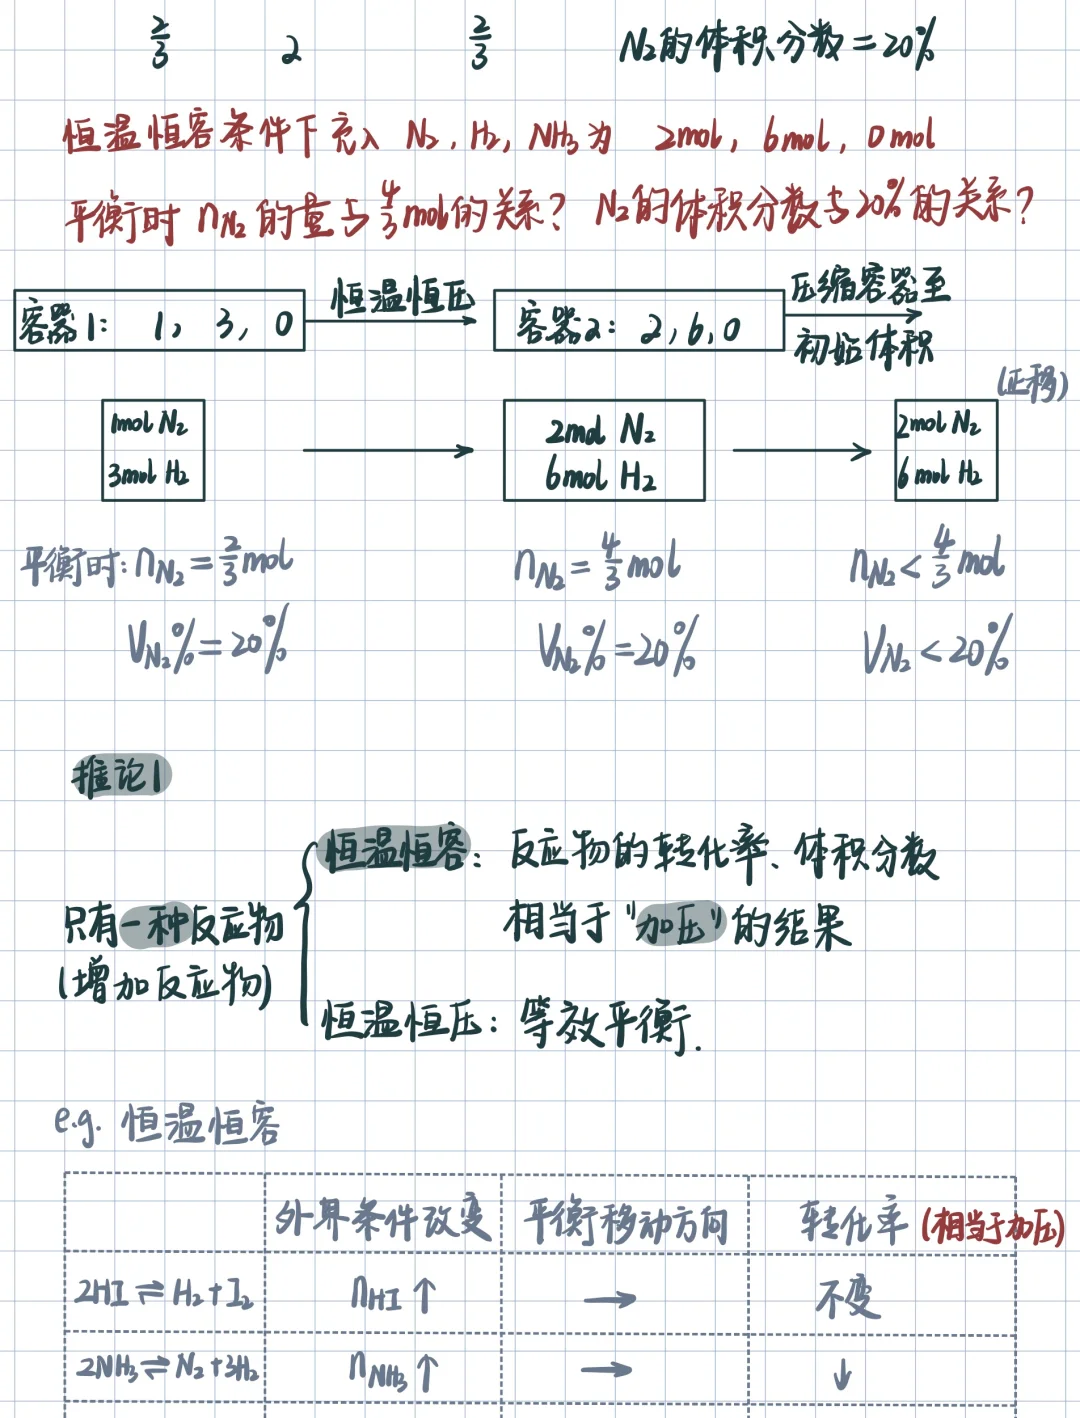 2/3 2 2/3 N₂的体积分数=20%
恒温恒容条件下充入 N₂, H₂, NH₃为 2mol, 6mol, 0mol
平衡时 nN₂的量与4/3mol的关系? N₂的体积分数与20%的关系?
容器1: 1, 3, 0 恒温恒压 容器2: 2, 6, 0 压缩容器至
初始体积
(正移)
1mol N₂ 2mol N₂ 2mol N₂
3mol H₂ 6mol H₂ 6mol H₂
平衡时: nN₂=2/3mol nN₂=4/3mol nN₂<4/3mol
VN₂%=20% VN₂%=20% VN₂<20%
推论1
恒温恒容: 反应物的转化率、体积分数
只有一种反应物 相当于"加压"的结果
(增加反应物)
恒温恒压: 等效平衡.
e.g. 恒温恒容
外界条件改变 平衡移动方向 转化率 (相当于加压)
2HI⇌H₂+I₂ nHI↑ → 不变
2NH₃⇌N₂+3H₂ nNH₃↑ → ↓